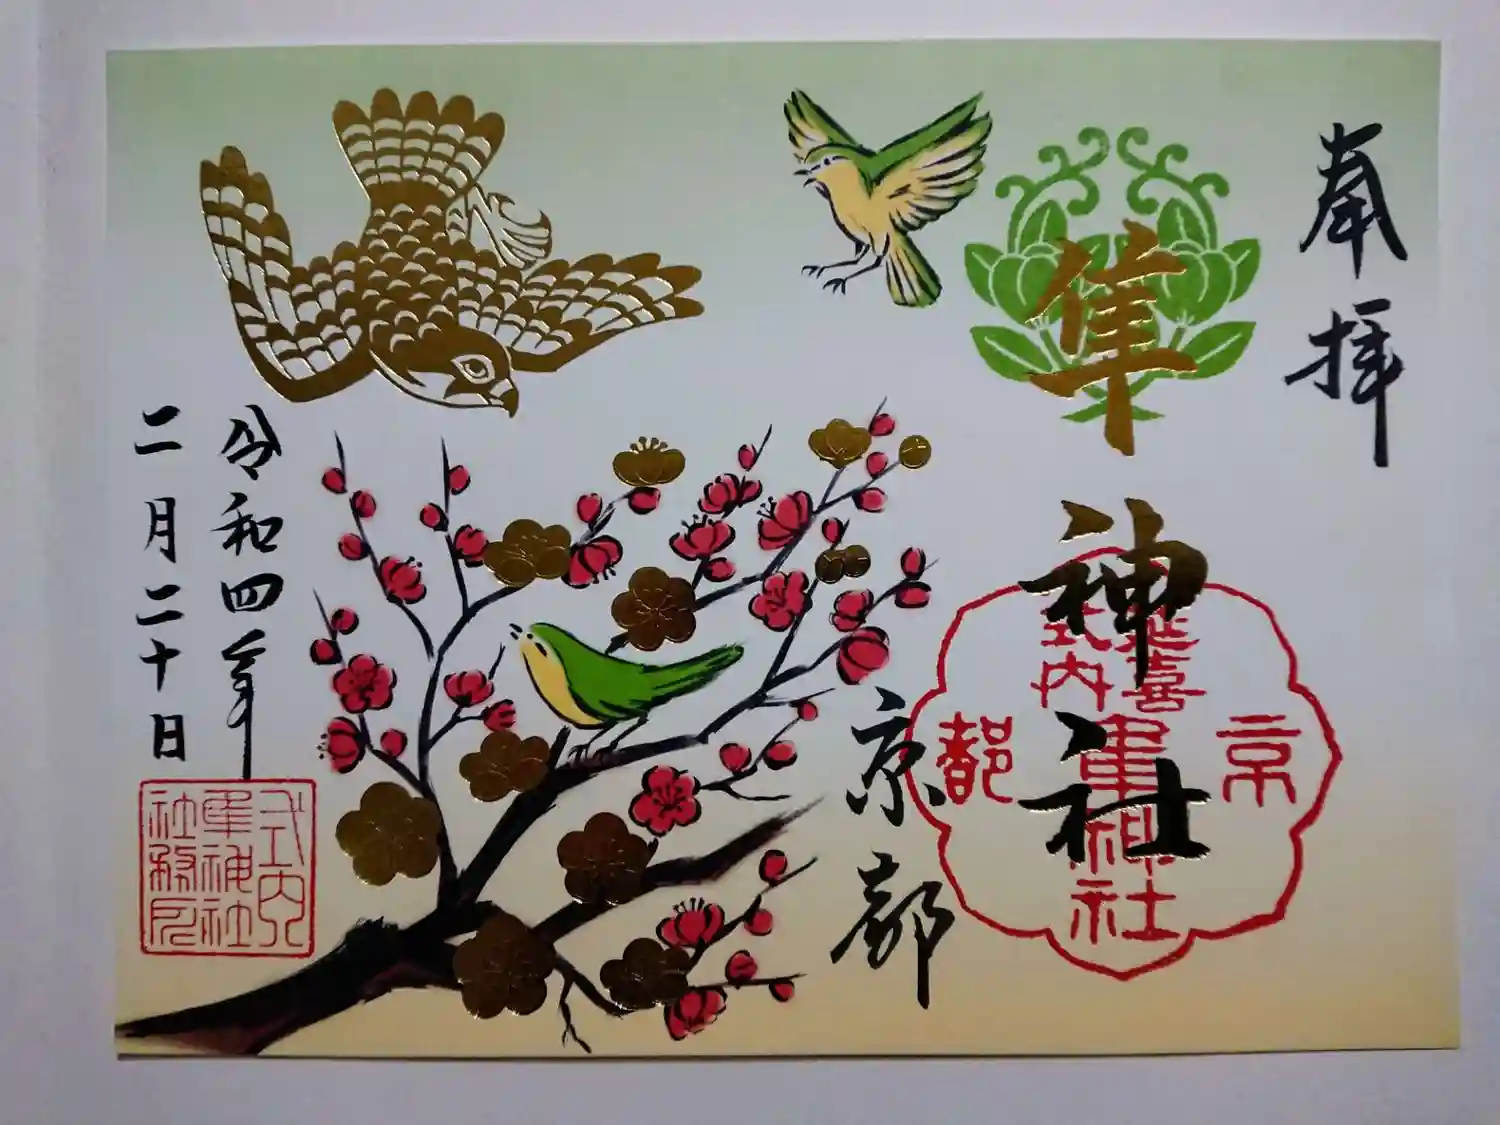 奉拝
隼神社
延喜
式内
隼神社
京都
京都
令和四年
二月二十日
式内
隼神社
社務